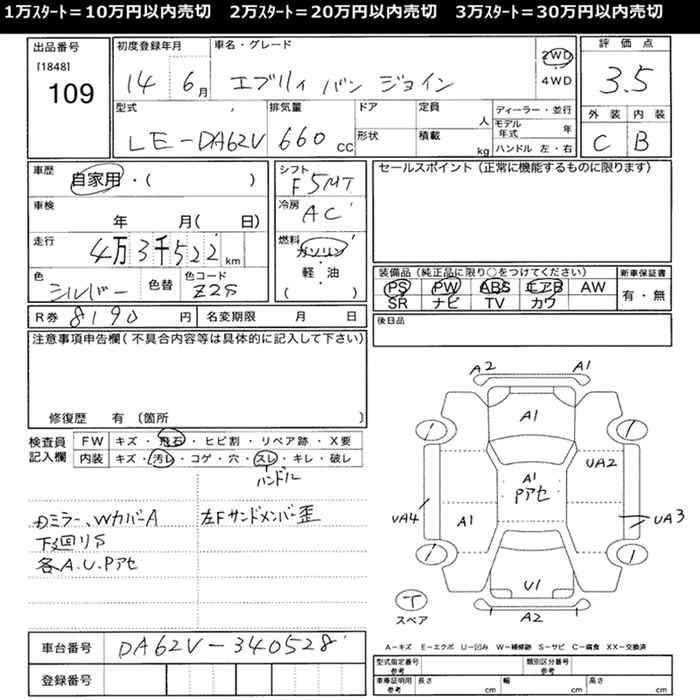 1万スタート＝10万円以内売切　2万スタート＝20万円以内売切　3万スタート＝30万円以内売切
出品番号 初度登録年月 車名・グレード 評価点
[1848]
109
14 6月 エブリィ バン ジョイン 2WD・4WD 3.5
型式 排気量 ドア 定員 ディーラー・並行 外装 内装
LE-DA62V 660cc 形状 人 積載 kg モデル年式 年 ハンドル 左・右 C B
車歴 自家用・（　） シフト F5MT セールスポイント（正常に機能するものに限ります）
車検 年 月（ 日） 冷房 AC
走行 4万3千522km 燃料 ガソリン・軽油（　）
色 シルバー 色替 色コード Z2S
装備品（純正品に限り○をつけてください） 新車保証書
PS PW ABS エアB AW 有・無
SR ナビ TV カワ
R券 8190円 名変期限 月 日 後日品
注意事項申告欄（不具合内容等は具体的に記入して下さい）
修復歴 有（箇所　）
検査員記入欄 FW キズ・飛石・ヒビ割・リペア跡・X要
内装 キズ・汚レ・コゲ・穴・スレ・キレ・破レ
ハンドル
ミラー、WカバーA 左Fサンドメンバー歪
下廻りS
各A.U.Pアセ
A2 A1
A1
UA2
A1
Pアセ
UA4 A1 UA3
U1
A2
T
スペア
車台番号 DA62V-340528
登録番号
A－キズ E－エクボ U－凹み W－補修跡 S－サビ C－腐食 XX－交換済
型式指定番号 参考 類別区分番号 参考
車庫証明用 参考 長さ cm 幅 cm 高さ cm